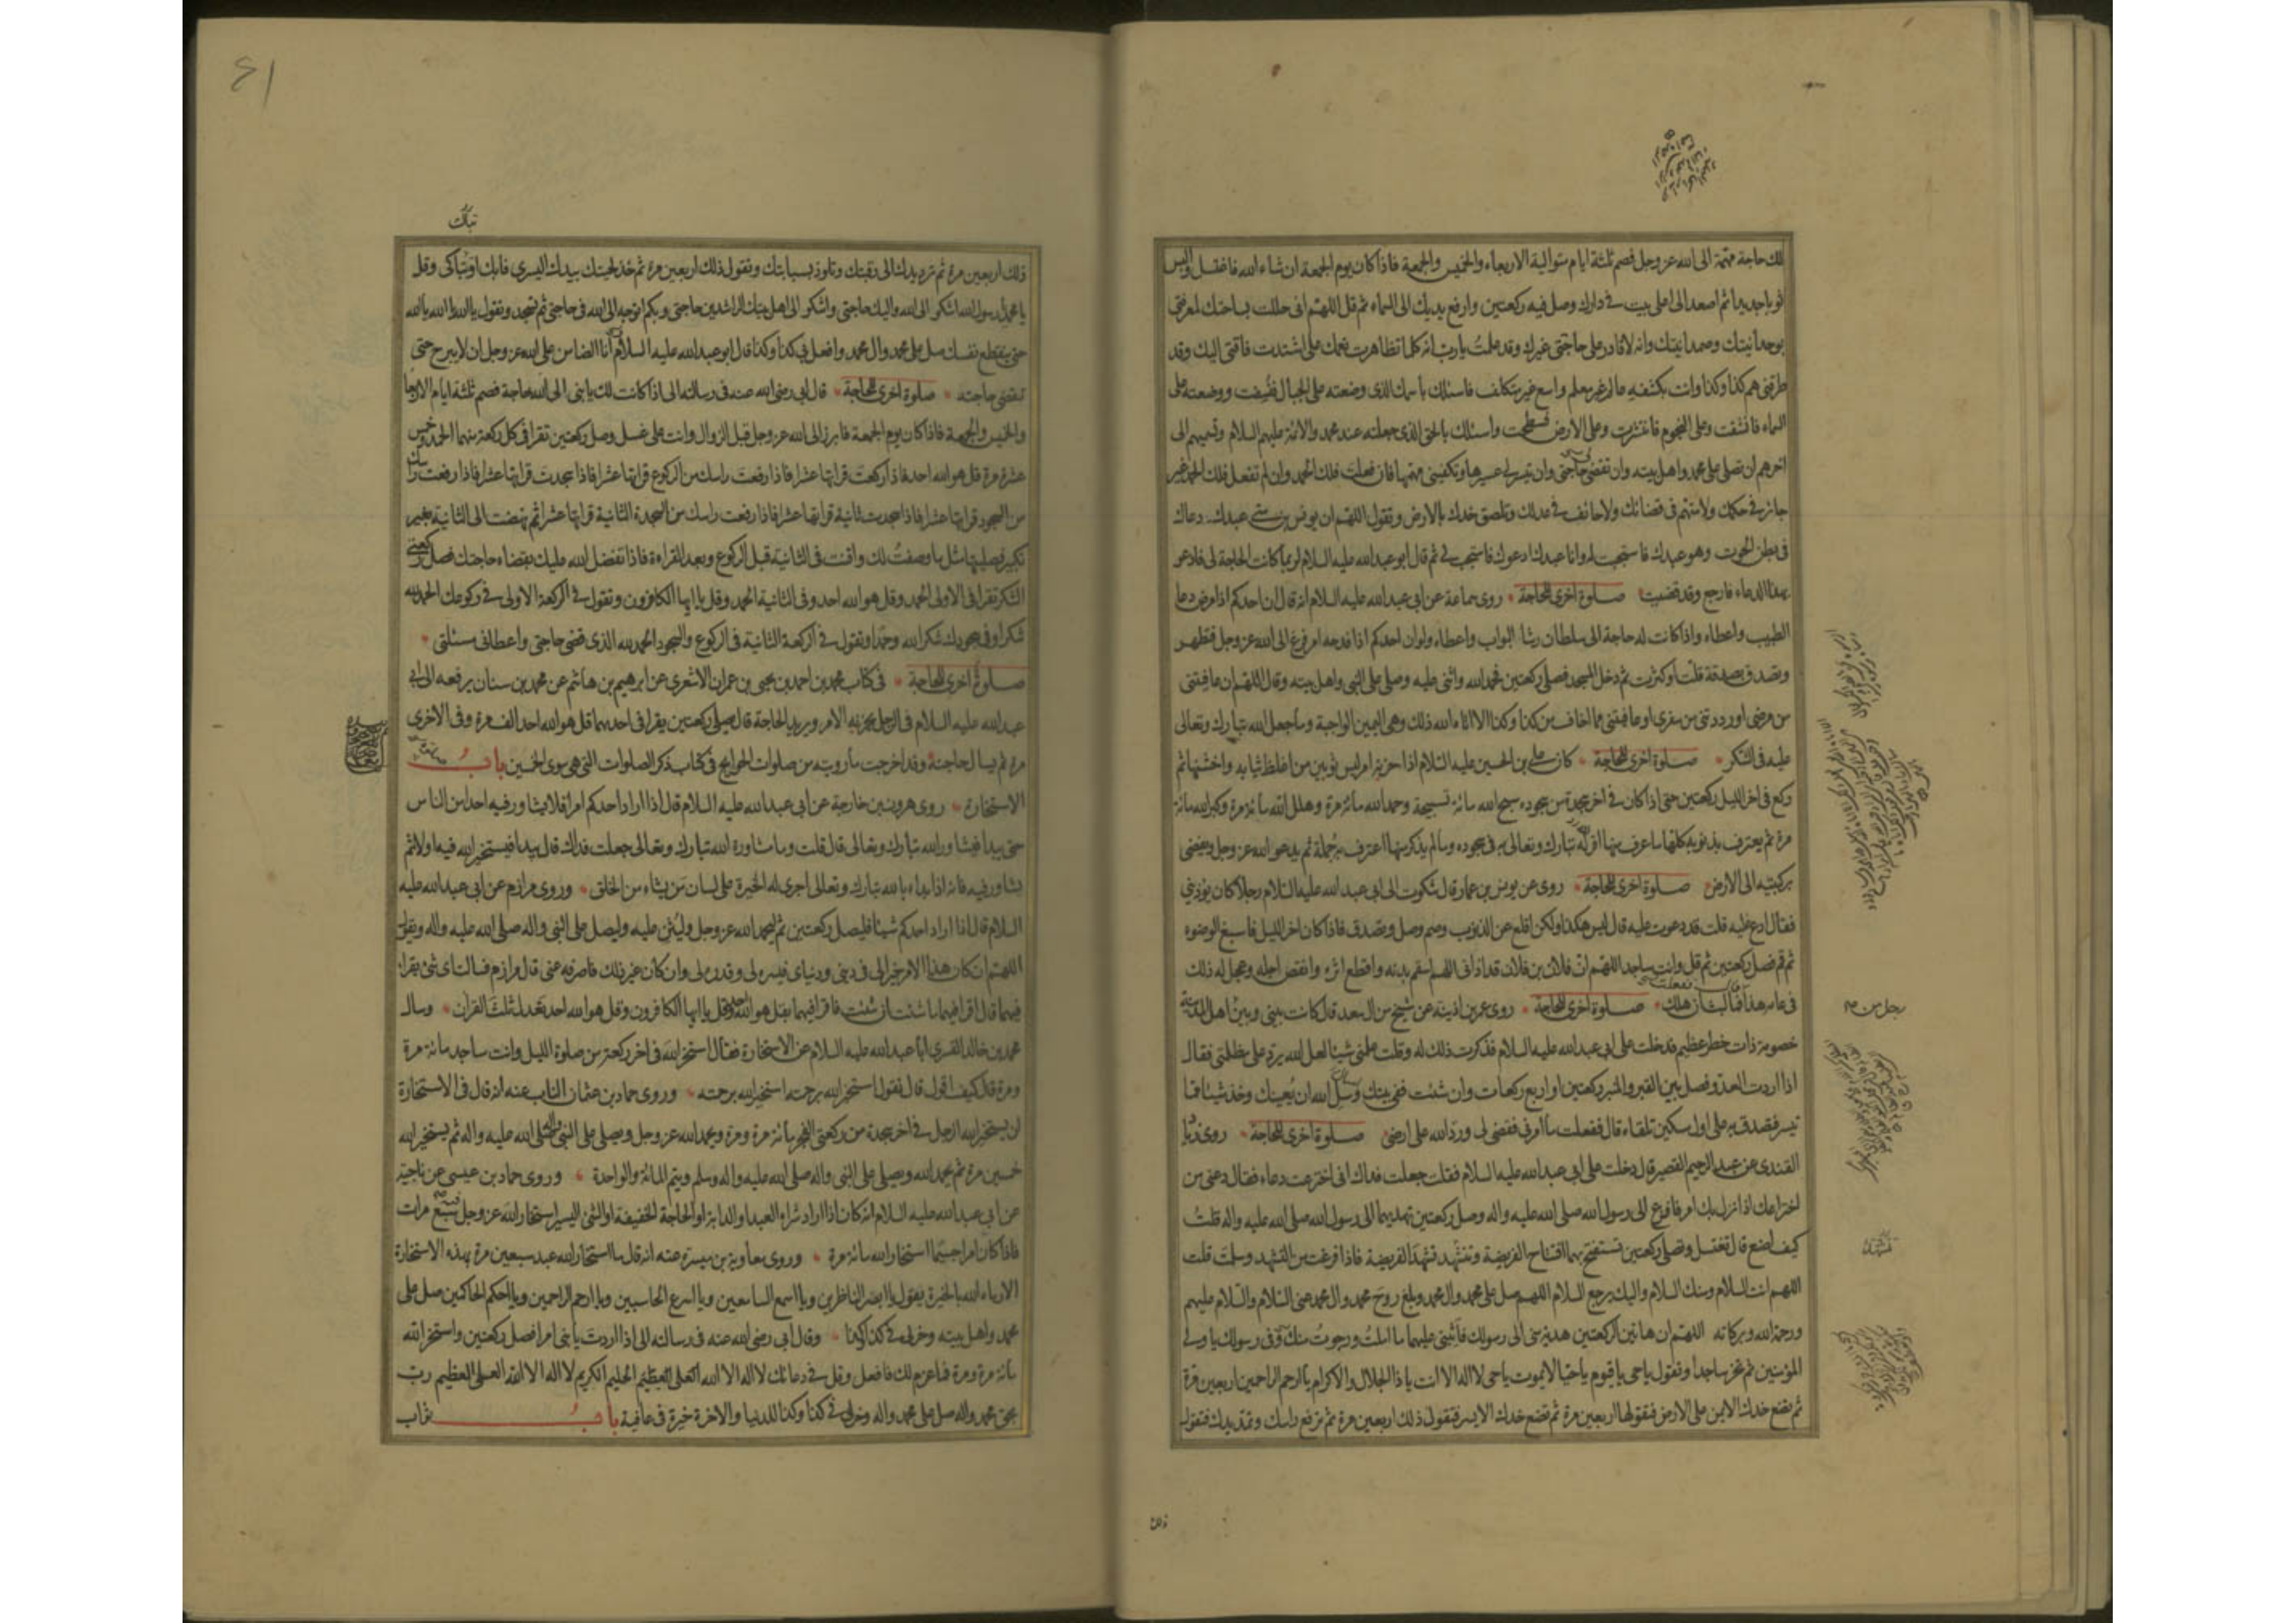 لك حاجة مهمة الى الله عز وجل فصم ثلثة ايام متوالية الاربعاء والخميس والجمعة فاذا كان يوم الجمعة ان شاء الله فاغتسل والبس
ثوبا جديدا ثم اصعد الى اعلى بيت في دارك وصل فيه ركعتين وارفع يديك الى السماء ثم قل اللهم انى حللت بساحتك لمعرفتى
بوحدانيتك وصمدانيتك وانه لا قادر على حاجتى غيرك وقد علمت يا رب انه كلما تظاهرت نعمك على اشتدت فاقتى اليك وقد
طرقنى هم كذا وكذا وانت بكشفه عالم غير معلم واسع غير متكلف فاسئلك باسمك الذى وضعته على الجبال فنسفت ووضعته على
السماء فانشقت وعلى النجوم فانتثرت وعلى الارض فسطحت واسئلك بالحق الذى جعلته عند محمد والائمة عليهم السلام وتسميهم الى
اخرهم ان تصلى على محمد واهل بيته وان تقضى حاجتى وان تيسر لى عسيرها وتكفينى مهمها فان فعلت فلك الحمد وان لم تفعل فلك الحمد غير
جائر في حكمك ولا متهم فى قضائك ولا حائف في عدلك وتلصق خدك بالارض وتقول اللهم ان يونس بن متى عبدك دعاك
فى بطن الحوت وهو عبدك فاستجبت له وانا عبدك ادعوك فاستجب لى ثم قال ابو عبد الله عليه السلام لربما كانت الحاجة لى فادعو
بهذا الدعاء فارجع وقد قضيت صلوة اخرى للحاجة روى سماعة عن ابى عبد الله عليه السلام انه قال ان احدكم اذا مرض دعا
الطبيب واعطاه واذا كانت له حاجة الى سلطان رشا البواب واعطاه ولو ان احدكم اذا فدحه امر فزع الى الله عز وجل فتطهر
وتصدق بصدقة قلت او كثرت ثم دخل المسجد فصلى ركعتين فحمد الله واثنى عليه وصلى على النبى واهل بيته وقال اللهم ان عافيتنى
من مرضى او رددتنى من سفرى او عافيتنى مما اخاف من كذا وكذا الا اتاه الله ذلك وهى اليمين الواجبة وما جعل الله تبارك وتعالى
عليه فى الشكر صلوة اخرى للحاجة كان على بن الحسين عليه السلام اذا حزنه امر لبس ثوبين من اغلظ ثيابه واخشنها ثم
ركع فى اخر الليل ركعتين حتى اذا كان في اخر سجدة من سجوده سبح الله مائة تسبيحة وحمد الله مائة مرة وهلل الله مائة مرة وكبر الله مائة
مرة ثم يعترف بذنوبه كلها ما عرف منها اقر له تبارك وتعالى به فى سجوده وما لم يذكر منها اعترف به جملة ثم يدعو الله عز وجل ويفضى
بركبتيه الى الارض صلوة اخرى للحاجة روى عن يونس بن عمار قال شكوت الى ابى عبد الله عليه السلام رجلا كان يؤذينى
فقال ادع عليه قلت قد دعوت عليه قال ليس هكذا ولكن اقلع عن الذنوب وصم وصل وتصدق فاذا كان اخر الليل فاسبغ الوضوء
ثم قم فصل ركعتين ثم قل وانت ساجد اللهم ان فلان بن فلان قد اذانى اللهم اسقم بدنه واقطع اثره وانقص اجله وعجل له ذلك
فى عامه هذا قال ففعلت فما لبث ان هلك صلوة اخرى للحاجة روى عمر بن اذينة عن شيخ من ال سعد قال كانت بينى وبين اهل المدينة
خصومة ذات خطر عظيم فدخلت على ابى عبد الله عليه السلام فذكرت ذلك له وقلت علمنى شيئا لعل الله يرد على مظلمتى فقال
اذا اردت العدو فصل بين القبر والمنبر ركعتين او اربع ركعات وان شئت ففى بيتك وسل الله ان يعينك وخذ شيئا مما
تيسر فتصدق به على اول مسكين تلقاه قال ففعلت ما امرنى فقضى لى ورد الله على ارضى صلوة اخرى للحاجة روى زياد
القندى عن عبد الرحيم القصير قال دخلت على ابى عبد الله عليه السلام فقلت جعلت فداك انى اخترعت دعاء فقال دعنى من
اختراعك اذا نزل بك امر فافزع الى رسول الله صلى الله عليه واله وصل ركعتين تهديهما الى رسول الله صلى الله عليه واله قلت
كيف اصنع قال تغتسل وتصلى ركعتين تستفتح بهما افتتاح الفريضة وتتشهد تشهد الفريضة فاذا فرغت من التشهد وسلمت قلت
اللهم انت السلام ومنك السلام واليك يرجع السلام اللهم صل على محمد وال محمد وبلغ روح محمد وال محمد عنى السلام والسلام عليهم
ورحمة الله وبركاته اللهم ان هاتين الركعتين هدية منى الى رسولك فاثبنى عليهما ما املت ورجوت منك وفى رسولك يا ولى
المؤمنين ثم تخر ساجدا وتقول يا حى يا قيوم يا حيا لا يموت يا حى لا اله الا انت يا ذا الجلال والاكرام يا ارحم الراحمين اربعين مرة
ثم تضع خدك الايمن على الارض فتقولها اربعين مرة ثم تضع خدك الايسر فتقول ذلك اربعين مرة ثم ترفع راسك وتمد يدك فتقول
ذلك
رجل من
٤١
ذلك اربعين مرة ثم ترد يدك الى رقبتك وتلوذ بسبابتك وتقول ذلك اربعين مرة ثم خذ لحيتك بيدك اليسرى فابك او تباكى وقل
يا محمد يا رسول الله اشكو الى الله واليك حاجتى واشكو الى اهل بيتك الراشدين حاجتى وبكم اتوجه الى الله فى حاجتى ثم تسجد وتقول يا الله يا الله يا الله
حتى ينقطع نفسك صل على محمد وال محمد وافعل بى كذا وكذا قال ابو عبد الله عليه السلام انا الضامن على الله عز وجل ان لا يبرح حتى
تقضى حاجته صلوة اخرى للحاجة قال ابى رضى الله عنه فى رسالته الى اذا كانت لك يا بنى الى الله حاجة فصم ثلثة ايام الاربعا
والخميس والجمعة فاذا كان يوم الجمعة فابرز الى الله عز وجل قبل الزوال وانت على غسل وصل ركعتين تقرا فى كل ركعة منهما الحمد وخمس
عشرة مرة قل هو الله احد فاذا ركعت قراتها عشرا فاذا رفعت راسك من الركوع قراتها عشرا فاذا سجدت قراتها عشرا فاذا رفعت راسك
من السجود قراتها عشرا فاذا سجدت ثانية قراتها عشرا فاذا رفعت راسك من السجدة الثانية قراتها عشرا ثم نهضت الى الثانية بغير
تكبير فصليتها مثل ما وصفت لك واقنت فى الثانية قبل الركوع وبعد القراءة فاذا تفضل الله عليك بقضاء حاجتك فصل ركعتى
الشكر تقرا فى الاولى الحمد وقل هو الله احد وفى الثانية الحمد وقل يا ايها الكافرون وتقول في الركعة الاولى في ركوعك الحمد لله
شكرا وفى سجودك شكرا لله وحمدا وتقول في الركعة الثانية فى الركوع والسجود الحمد لله الذى قضى حاجتى واعطانى مسئلتى
صلوة اخرى للحاجة فى كتاب محمد بن احمد بن يحيى بن عمران الاشعرى عن ابرهيم بن هاشم عن محمد بن سنان يرفعه الى ابى
عبد الله عليه السلام فى الرجل يحزنه الامر ويريد الحاجة قال يصلى ركعتين يقرا فى احديهما قل هو الله احد الف مرة وفى الاخرى
مرة ثم يسال حاجته وقد اخرجت ما رويته من صلوات الحوايج فى كتاب ذكر الصلوات التى هى سوى الخمسين باب
الاستخارة روى هرون بن خارجة عن ابى عبد الله عليه السلام قال اذا اراد احدكم امرا فلا يشاور فيه احدا من الناس
حتى يبدا فيشاور الله تبارك وتعالى قال قلت وما مشاورة الله تبارك وتعالى جعلت فداك قال يبدا فيستخير الله فيه اولا ثم
يشاور فيه فانه اذا بداء بالله تبارك وتعالى اجرى له الخيرة على لسان من يشاء من الخلق وروى مرازم عن ابى عبد الله عليه
السلام قال اذا اراد احدكم شيئا فليصل ركعتين ثم ليحمد الله عز وجل وليثن عليه وليصل على النبى واله صلى الله عليه واله ويقول
اللهم ان كان هذا الامر خيرا لى فى دينى ودنياى فيسره لى وقدره لى وان كان غير ذلك فاصرفه عنى قال مرازم فسالت اى شئ يقرا
فيهما قال اقرا فيهما ما شئت ان شئت فاقرا فيهما بقل هو الله احد وقل يا ايها الكافرون وقل هو الله احد تعدل ثلث القران وسال
محمد بن خالد القسرى ابا عبد الله عليه السلام عن الاستخارة فقال استخر الله فى اخر ركعة من صلوة الليل وانت ساجد مائة مرة
ومرة قال كيف اقول قال تقول استخير الله برحمته استخير الله برحمته وروى حماد بن عثمان الناب عنه انه قال فى الاستخارة
ان يستخير الله الرجل في اخر سجدة من ركعتى الفجر مائة مرة ومرة ويحمد الله عز وجل ويصلى على النبى واله صلى الله عليه واله ثم يستخير الله
خمسين مرة ثم يحمد الله ويصلى على النبى واله صلى الله عليه واله وسلم ويتم المائة والواحدة وروى حماد بن عيسى عن ناجية
عن ابى عبد الله عليه السلام انه كان اذا اراد شراء العبد او الدابة او الحاجة الخفيفة او الشئ اليسير استخار الله عز وجل فيه سبع مرات
فاذا كان امرا جسيما استخار الله مائة مرة وروى معاوية بن ميسرة عنه انه قال ما استخار الله عبد سبعين مرة بهذه الاستخارة
الا رماه الله بالخيرة يقول يا ابصر الناظرين ويا اسمع السامعين ويا اسرع الحاسبين ويا ارحم الراحمين ويا احكم الحاكمين صل على
محمد واهل بيته وخر لى في كذا وكذا وقال ابى رضى الله عنه فى رسالته الى اذا اردت يا بنى امرا فصل ركعتين واستخر الله
مائة مرة ومرة فما عزم لك فافعل وقل في دعائك لا اله الا الله العلى العظيم الحليم الكريم لا اله الا الله العلى العظيم رب
بحق محمد واله صل على محمد واله وخر لى في كذا وكذا للدنيا والاخرة خيرة فى عافية باب ثواب